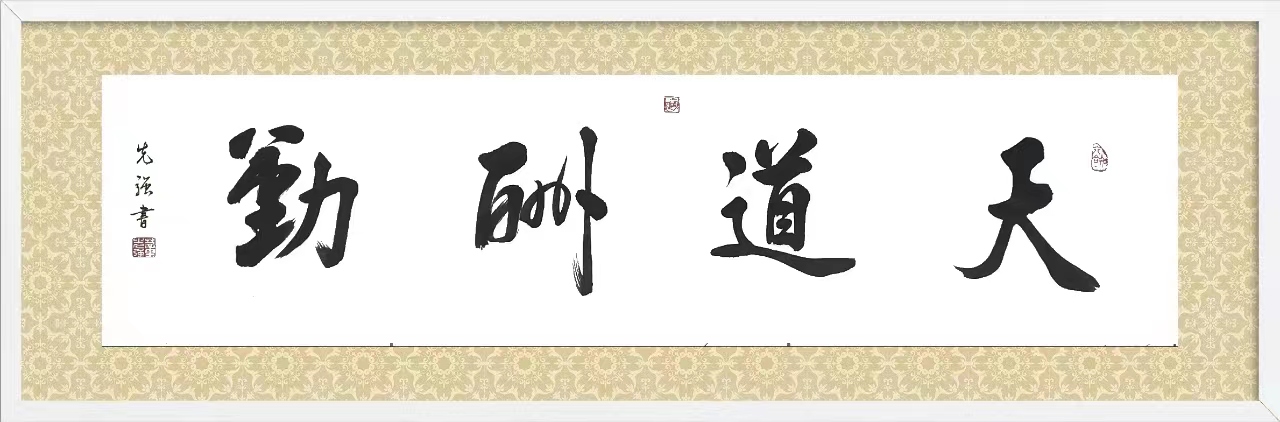 天道酬勤
先强書